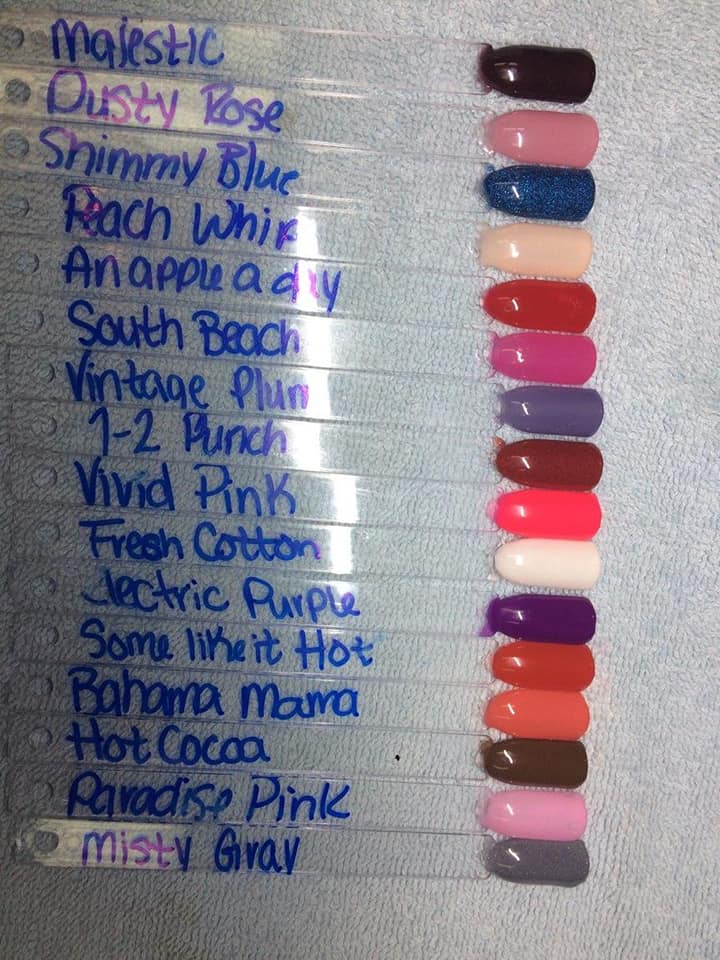 Majestic
Dusty Rose
Shimmy Blue
Peach Whip
An apple a day
South Beach
Vintage Plum
1-2 Punch
Vivid Pink
Fresh Cotton
lectric Purple
Some like it Hot
Bahama Mama
Hot Cocoa
Paradise Pink
Misty Gray